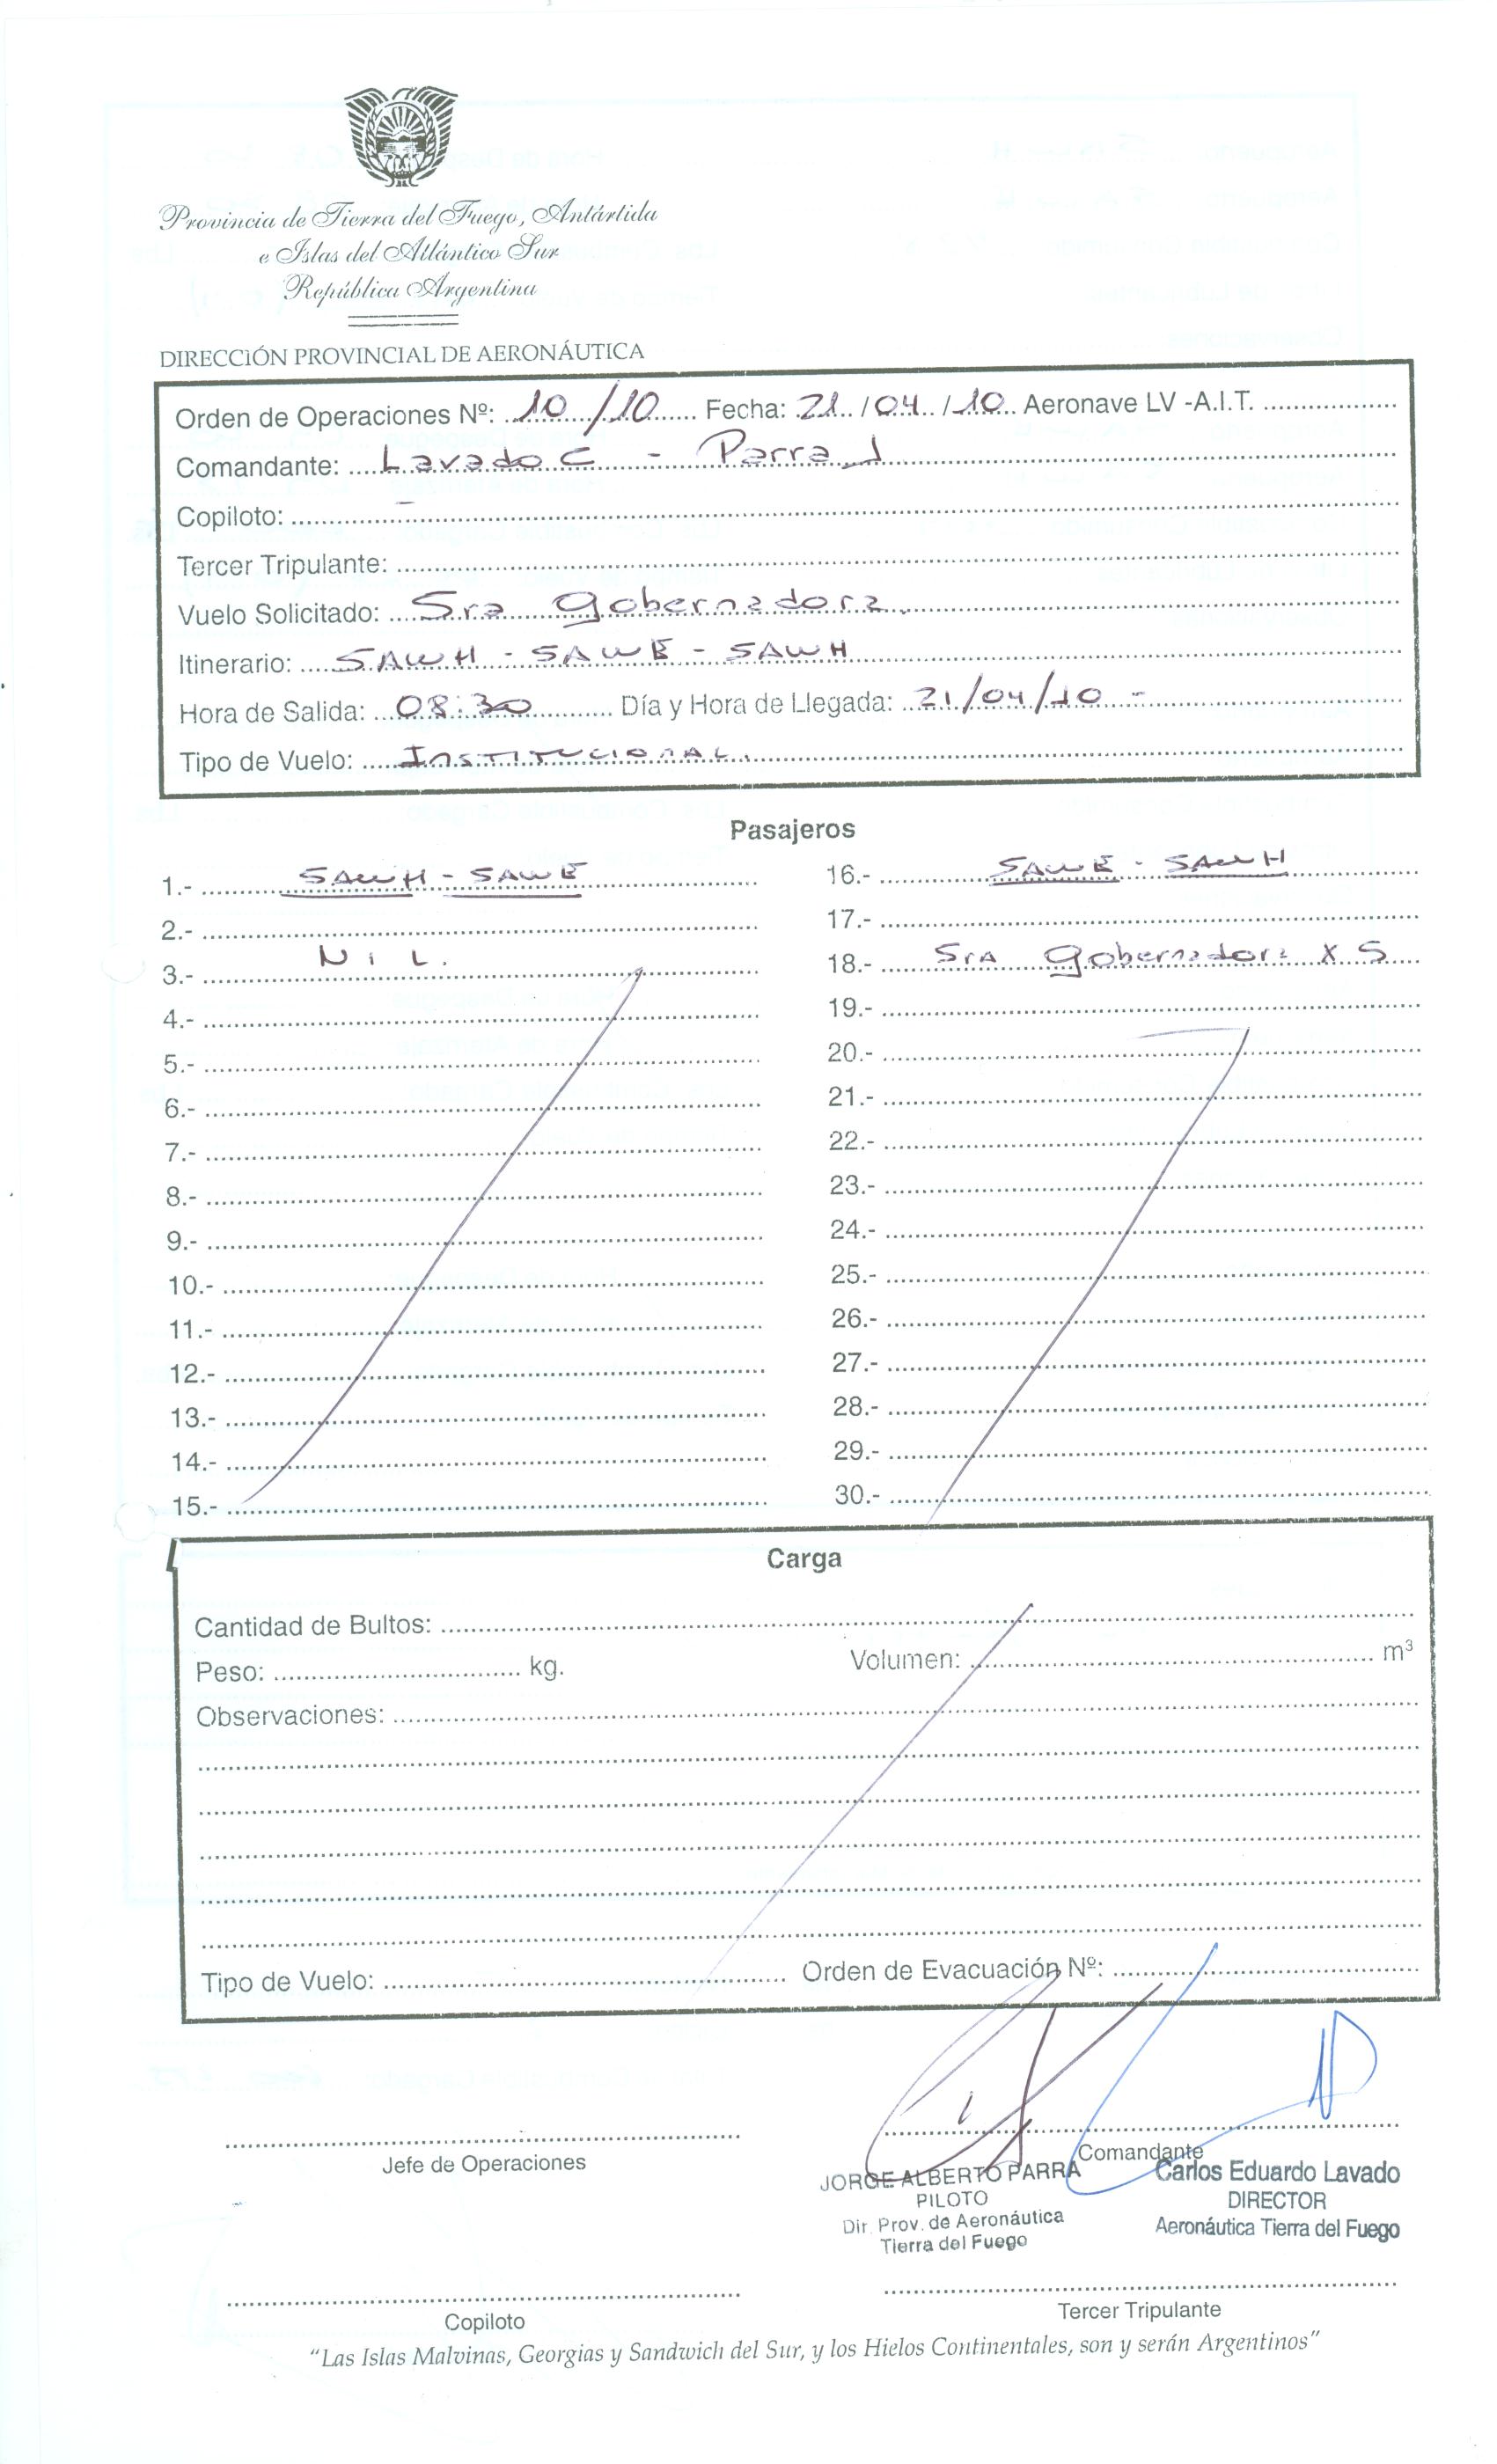 Provincia de Tierra del Fuego, Antártida
e Islas del Atlántico Sur
República Argentina
DIRECCIÓN PROVINCIAL DE AERONÁUTICA
Orden de Operaciones Nº: 10/10 Fecha: 21/04/10 Aeronave LV -A.I.T.
Comandante: Lavado C - Parra J
Copiloto: -
Tercer Tripulante:
Vuelo Solicitado: Sra Gobernadora.
Itinerario: SAWH - SAWE - SAWH
Hora de Salida: 08:30 Día y Hora de Llegada: 21/04/10 -
Tipo de Vuelo: Institucional.
Pasajeros
1.- SAWH - SAWE
2.-
3.- NIL.
4.-
5.-
6.-
7.-
8.-
9.-
10.-
11.-
12.-
13.-
14.-
15.-
16.- SAWE - SAWH
17.-
18.- Sra Gobernadora X 5
19.-
20.-
21.-
22.-
23.-
24.-
25.-
26.-
27.-
28.-
29.-
30.-
Carga
Cantidad de Bultos:
Peso: kg. Volumen: m³
Observaciones:
Tipo de Vuelo: Orden de Evacuación Nº:
Jefe de Operaciones
Comandante
JORGE ALBERTO PARRA
PILOTO
Dir. Prov. de Aeronáutica
Tierra del Fuego
Carlos Eduardo Lavado
DIRECTOR
Aeronáutica Tierra del Fuego
Copiloto
Tercer Tripulante
"Las Islas Malvinas, Georgias y Sandwich del Sur, y los Hielos Continentales, son y serán Argentinos"